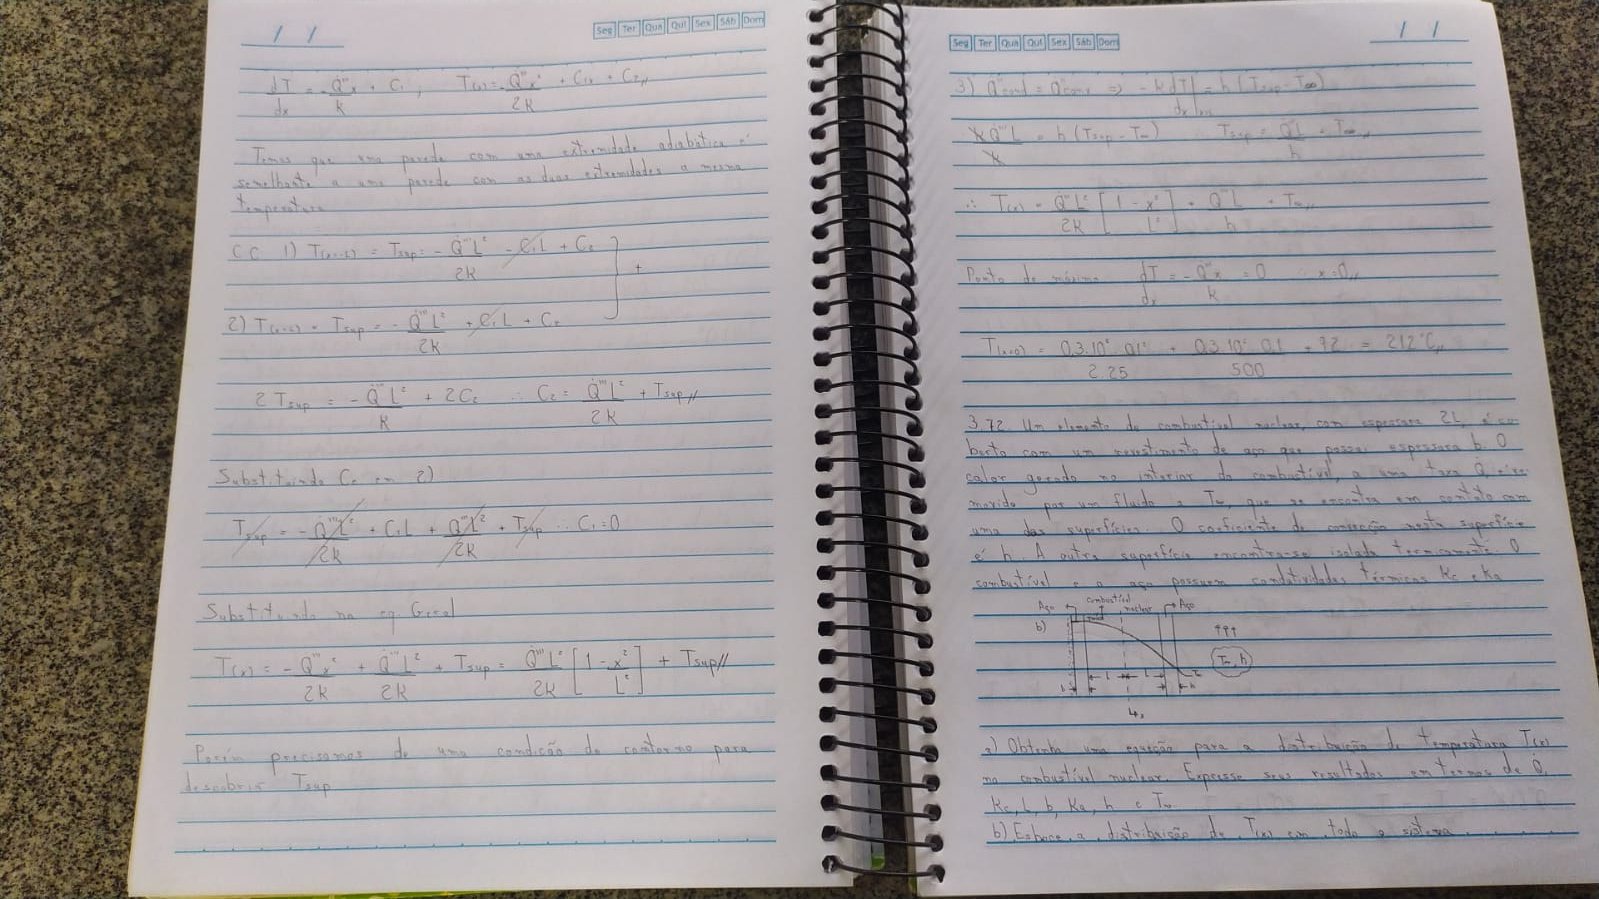 / /
Seg Ter Qua Qui Sex Sáb Dom
dT/dx = -Q'''x/k + C₁ , T(x) = -Q'''x²/2k + C₁x + C₂//
Temos que uma parede com uma extremidade adiabática é
semelhante a uma parede com as duas extremidades a mesma
temperatura
CC 1) T(x=-L) = Tsup = -Q'''L²/2k - C₁L + C₂
+
2) T(x=L) = Tsup = -Q'''L²/2k + C₁L + C₂
2Tsup = -Q'''L²/k + 2C₂ ∴ C₂ = Q'''L²/2k + Tsup//
Substituindo C₂ em 2)
Tsup = -Q'''L²/2k + C₁L + Q'''L²/2k + Tsup ∴ C₁=0
Substituindo na eq. Geral
T(x) = -Q'''x²/2k + Q'''L²/2k + Tsup = Q'''L²/2k [1 - x²/L²] + Tsup//
Porém precisamos de uma condição de contorno para
descobrir Tsup
Seg Ter Qua Qui Sex Sáb Dom
/ /
3) Q''cond = Q''conv => -k dT/dx|x=L = h (Tsup - T∞)
kQ'''L/k = h (Tsup - T∞) ∴ Tsup = Q'''L/h + T∞//
∴ T(x) = Q'''L²/2k [1 - x²/L²] + Q'''L/h + T∞//
Ponto de máximo dT/dx = -Q'''x/k = 0 ∴ x=0//
T(x=0) = 0,3.10⁶.0,1²/2.25 + 0,3.10⁶.0,1/500 + 92 = 212°C//
3.72. Um elemento de combustível nuclear, com espessura 2L, é co-
berto com um revestimento de aço que possui espessura b. O
calor gerado no interior do combustível, a uma taxa Q, é re-
movido por um fluido a T∞, que se encontra em contato com
uma das superfícies. O coeficiente de convecção nesta superfície
é h. A outra superfície encontra-se isolada termicamente. O
combustível e o aço possuem condutividades térmicas Kc e Ka
combustível
Aço nuclear Aço
b)
T∞, h
L L
b b
a) Obtenha uma equação para a distribuição de temperatura T(x)
no combustível nuclear. Expresse seus resultados em termos de Q,
Kc, L, b, Ka, h e T∞
b) Esboce a distribuição de T(x) em todo o sistema